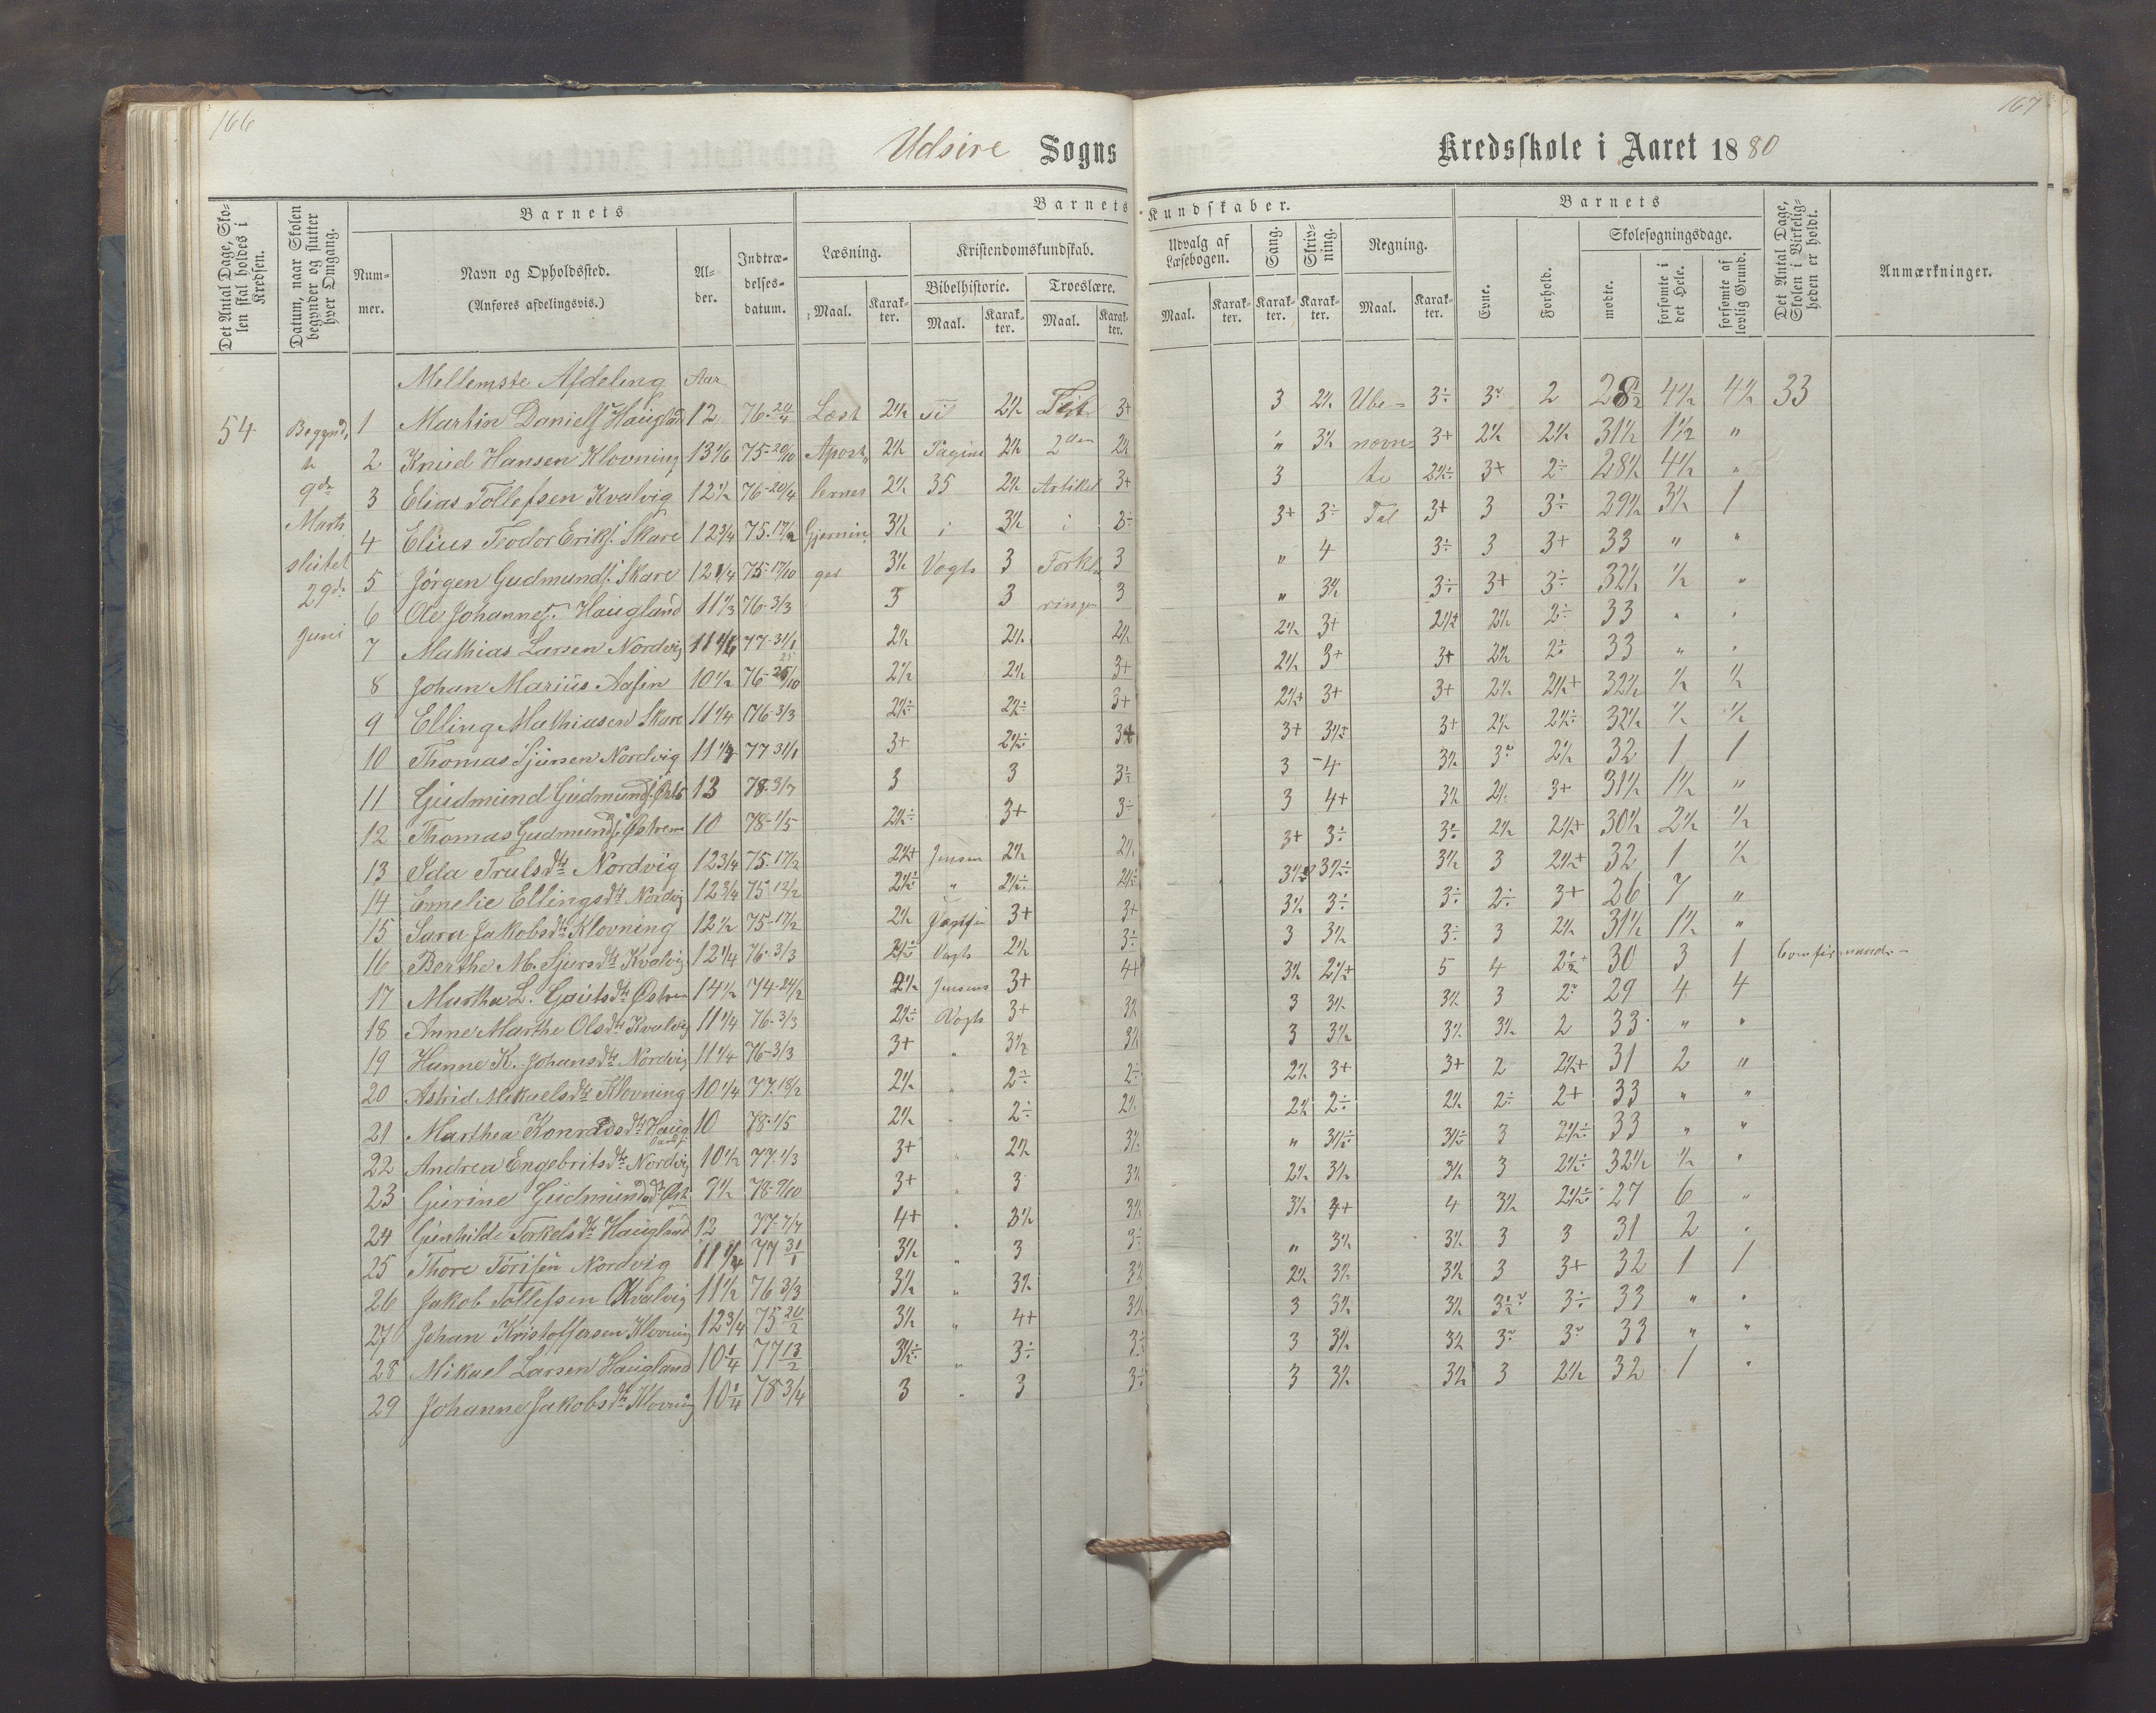 166
167
Udsire Sogns
Kredsskole i Aaret 1880
Det Antal Dage, Skolen skal holdes i Kredsen.
Datum, naar Skolen begynder og slutter hver Omgang.
Barnets
Nummer.
Navn og Opholdssted.
(Anføres afdelingsvis.)
Alder.
Indtrædelsesdatum.
Barnets Kundskaber.
Læsning.
Kristendomskundskab.
Bibelhistorie.
Troeslære.
Maal.
Karakter.
Maal.
Karakter.
Maal.
Karakter.
Udvalg af Læsebogen.
Sang.
Skrivning.
Regning.
Maal.
Karakter.
Karakter.
Karakter.
Maal.
Karakter.
Barnets
Evne.
Forhold.
Skolesøgningsdage.
mødte.
forsømte i det Hele.
forsømte af lovlig Grund.
Det Antal Dage, Skolen i Virkeligheden er holdt.
Anmærkninger.
Mellemste Afdeling Aar
54 1 Martin Daniels. Haugland 12 76-20/4 Læst 2½ Til 2½ 3+ 3 2½ Ube= 3÷ 3 2 28½ 4½ 4½ 33
2 Knud Hansen Klovning 13 1/6 75-20/10 Apost 2½ Pagina 2½ 2den 2½ " 3½ nævn= 3+ 2½ 2½ 31½ 1½ "
9de 3 Elias Tollefsen Kvalvig 12½ 76-20/4 lernes 2½ 35 2½ Artikel 3+ 3 te 2½÷ 3+ 2÷ 28½ 4½ "
Marts 4 Elius Teodor Eriks. Skare 12¾ 75-17/2 3½ i 3½ i 3÷ 3+ 3÷ Tal 3+ 3 3÷ 29½ 3½ 1
slutet 5 Jørgen Gudmunds. Skare 12¼ 75-17/10 3½ Vogts 3 3 " 4 3÷ 3 3+ 33 " "
29de 6 Ole Johannes. Haugland 11⅓ 76-3/3 3 3 3 " 3½ 3÷ 3+ 3÷ 32½ ½ "
Juni 7 Mathias Larsen Nordvig 77-31/1 2½ 2½ 2½ 2½ 3+ 2½+ 2½ 2÷ 33 " "
8 Johan Marius Aasen 10½ 2½ 2½ 3+ 2½ 3+ 3+ 2½ 2÷ 33 " "
9 Elling Mathiasen Skare 11¼ 76-3/3 2½÷ 2½÷ 3+ 2½+ 3+ 3+ 2½ 2½+ 32½ ½ ½
10 Thomas Sjursen Nordvig 77 31/1 3+ 2½÷ 3+ 3+ 3½+ 3+ 2½ 2½÷ 32½ ½ ½
11 Gudmund Gudmunds. 13 78-3/7 3 3 3÷ 3 4 3½ 3 2½ 32 1 1
12 Thomas Gudmunds. Østrem 10 78-1/5 2½÷ 3+ 3÷ 3 4+ 3½ 2½ 3+ 31½ 1½ "
13 Ida Trulsdtr Nordvig 12¾ 75-17/2 2½+ Jensen 2½ 2½ 3+ 3÷ 3÷ 2½ 2½+ 30½ 2½ ½
14 Emelie Ellingsdtr Nordvig 12¾ 75 2½÷ " 2½÷ 2½÷ 3½÷ 3½ 3 2½+ 32 1 ½
15 Sara Jakobsdtr Klovning 12½ 75-17/2 2½ 3+ 3+ 3½ 3÷ 3÷ 2÷ 3+ 26 7 "
16 Berthe M. Sjursdtr Kvalvig 12¼ 76-3/3 2½÷ Vogts 2½ 3÷ 3 3½ 3÷ 3 2½ 31½ 1½ "
17 Martha L. Gautsdtr Østrem 14½ 74-24/2 2½ Jensens 3+ 4+ 3½ 2½+ 5 4 30 3 1
18 Anne Marthe Olsdtr Kvalvig 11¼ 76-3/3 2½÷ Vogts 3+ 3½ 3 3½ 3½ 3 2 29 4 4
19 Hanne K. Johansdtr Nordvig 11¼ 76-3/3 3+ " 3½ 3½ 3 3½ 3½ 3½ 2 33 " "
20 Astrid Mikaelsdtr Klovning 10¼ 77-18/2 2½ " 2÷ 2÷ 2½ 3+ 3+ 2 2½+ 31 2 "
21 Marthea Konradsdtr Haugland 10 78-1/5 2½ " 2÷ 2½ 2½ 2÷ 2½ 2÷ 2+ 33 " "
22 Andrea Engebritsdtr Nordvig 10½ 77-1/3 3+ " 2½ 3½ " 3½÷ 3½÷ 3 2½÷ 33 " "
23 Gurine Gudmundsdtr Øst. 9½ 78-9/10 3+ " 3 3½ 2½ 3½ 3½ 3 2½÷ 32½ ½ "
24 Gunhilde Torkelsdtr Haugland 12 77-7/7 4+ " 3½ 3½ 3½ 4 3½ 2½÷ 27 6 "
25 Thore Torisen Nordvig 77 31/1 3½ " 3 3÷ " 3½ 3½ 3 3 31 2 "
26 Jakob Tollefsen Kvalvig 11½ 76 3/3 3½ " 3½ 3½ 2½ 3½ 3½ 3 3+ 32 1 1
27 Johan Kristoffersen Klovning 12¾ 75 20/2 3½ " 4+ 3½ 3 3½ 3½ 3÷ 33 " "
28 Mikael Larsen Haugland 10¼ 77 13/2 3½÷ " 3÷ 3÷ 3 3½ 3½ 3 3 33 " "
29 Johanne Jakobsdtr Klovning 10¼ 78 3/4 3 " 3 3÷ 3 3½ 3½ 3 2½ 32 1 "